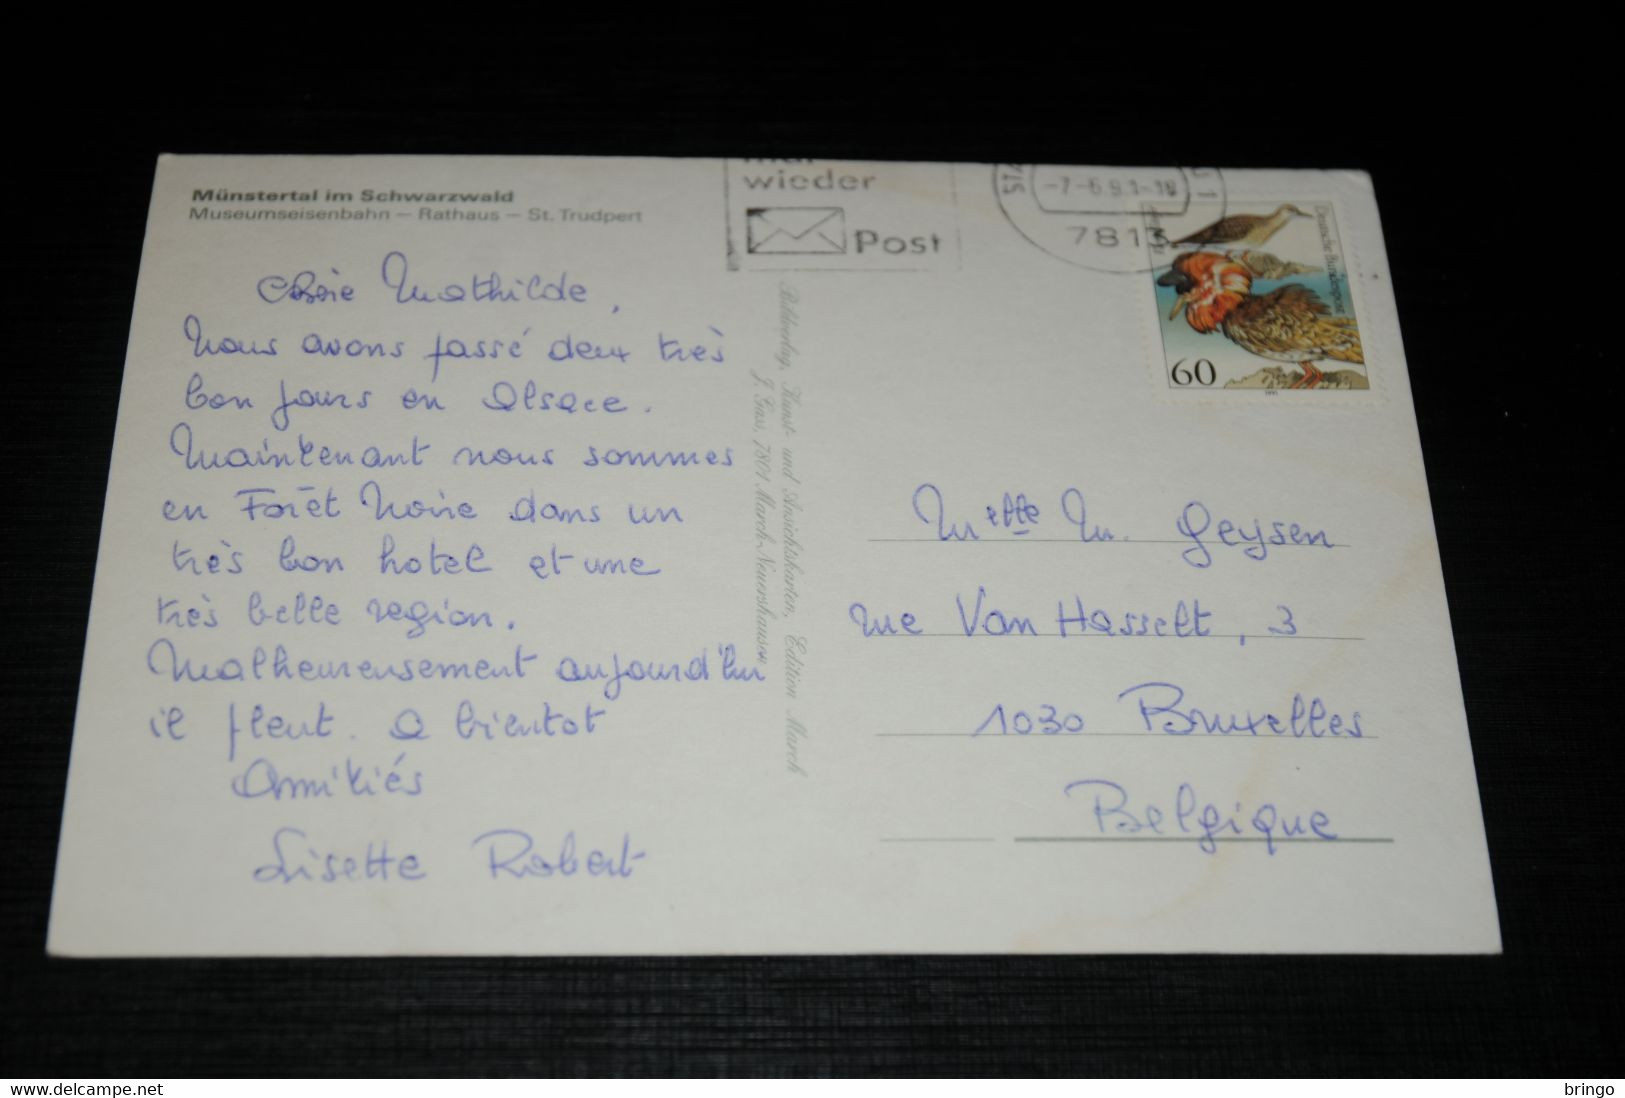 Münstertal im Schwarzwald
Museumseisenbahn – Rathaus – St. Trudpert
wieder
Post
-7-6.91-18
7813
Deutsche Bundespost
60
1991
Chère Mathilde,
Nous avons passé deux très
bon jours en Alsace.
Maintenant nous sommes
en Forêt Noire dans un
très bon hotel et une
très belle region.
Malheureusement aujourd'hui
il pleut. A bientot
Amitiés
Lisette Robert
Bildverlag, Kunst- und Ansichtskarten, Edition March
J. Gass, 7801 March-Neuershausen
Melle M. Geysen
rue Van Hasselt, 3
1030 Bruxelles
Belgique
delcampe.net
bringo